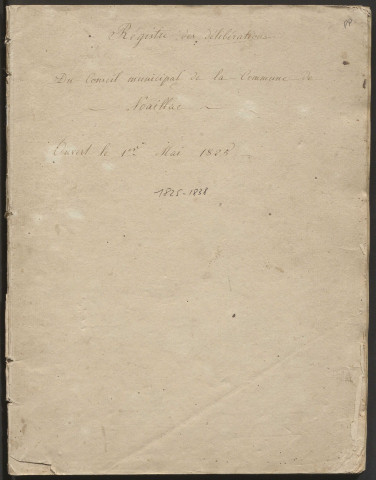 Registre des délibérations
Du Conseil municipal de la Commune de
Noaillac
Ouvert le 1er Mai 1825
1825-1838